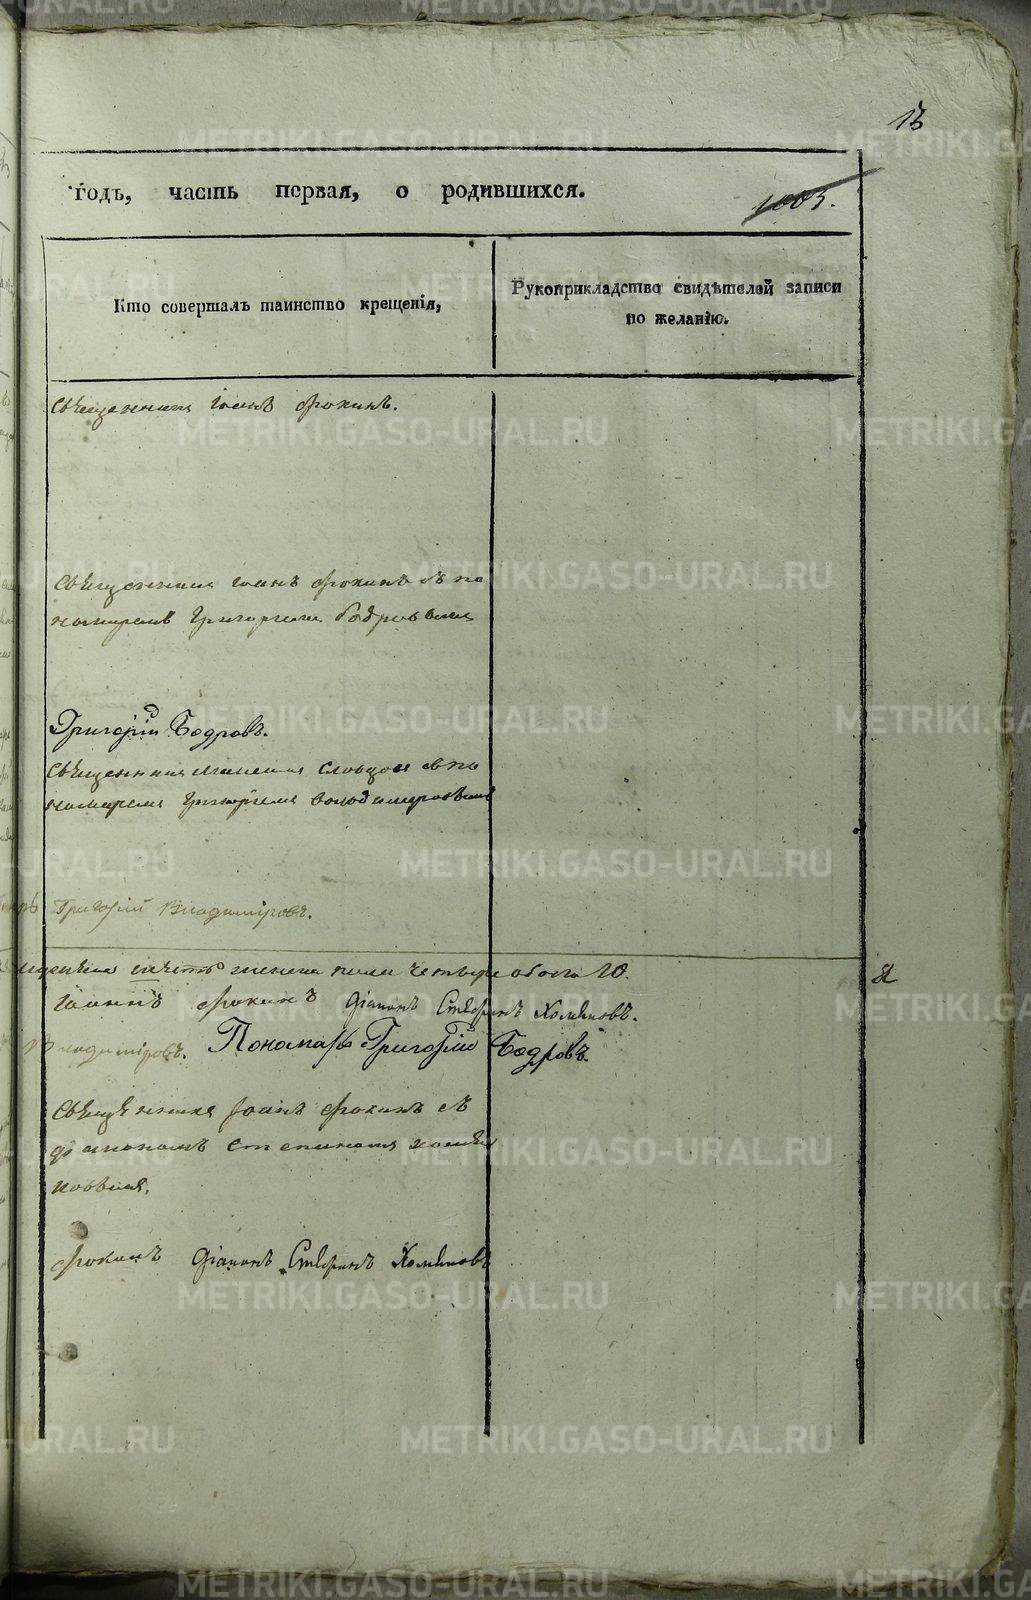 13
годъ, часть первая, о родившихся.
1003.
Кто совершалъ таинство крещенія,
Рукоприкладство свидѣтелей записи
по желанію.
священникъ Іоаннъ Фокинъ.
священникъ Іоанъ Фокинъ съ по
номаремъ Григорьемъ Бодровымъ
Григорій Бодровъ.
священникъ Словцов съ по
номаремъ Григорьемъ Володимеровымъ
Григорій Владимировъ.
женска пола четыре обоего 10.
Іоаннъ Фокинъ Діаконъ Стефанъ Хомяковъ.
Владимировъ. Пономарь Григорій Бодровъ.
священникъ Іоанъ Фокинъ съ
діакономъ Степаномъ Хомя
ковымъ.
Фокинъ Діаконъ Стефанъ Хомяковъ
METRIKI.GASO-URAL.RU